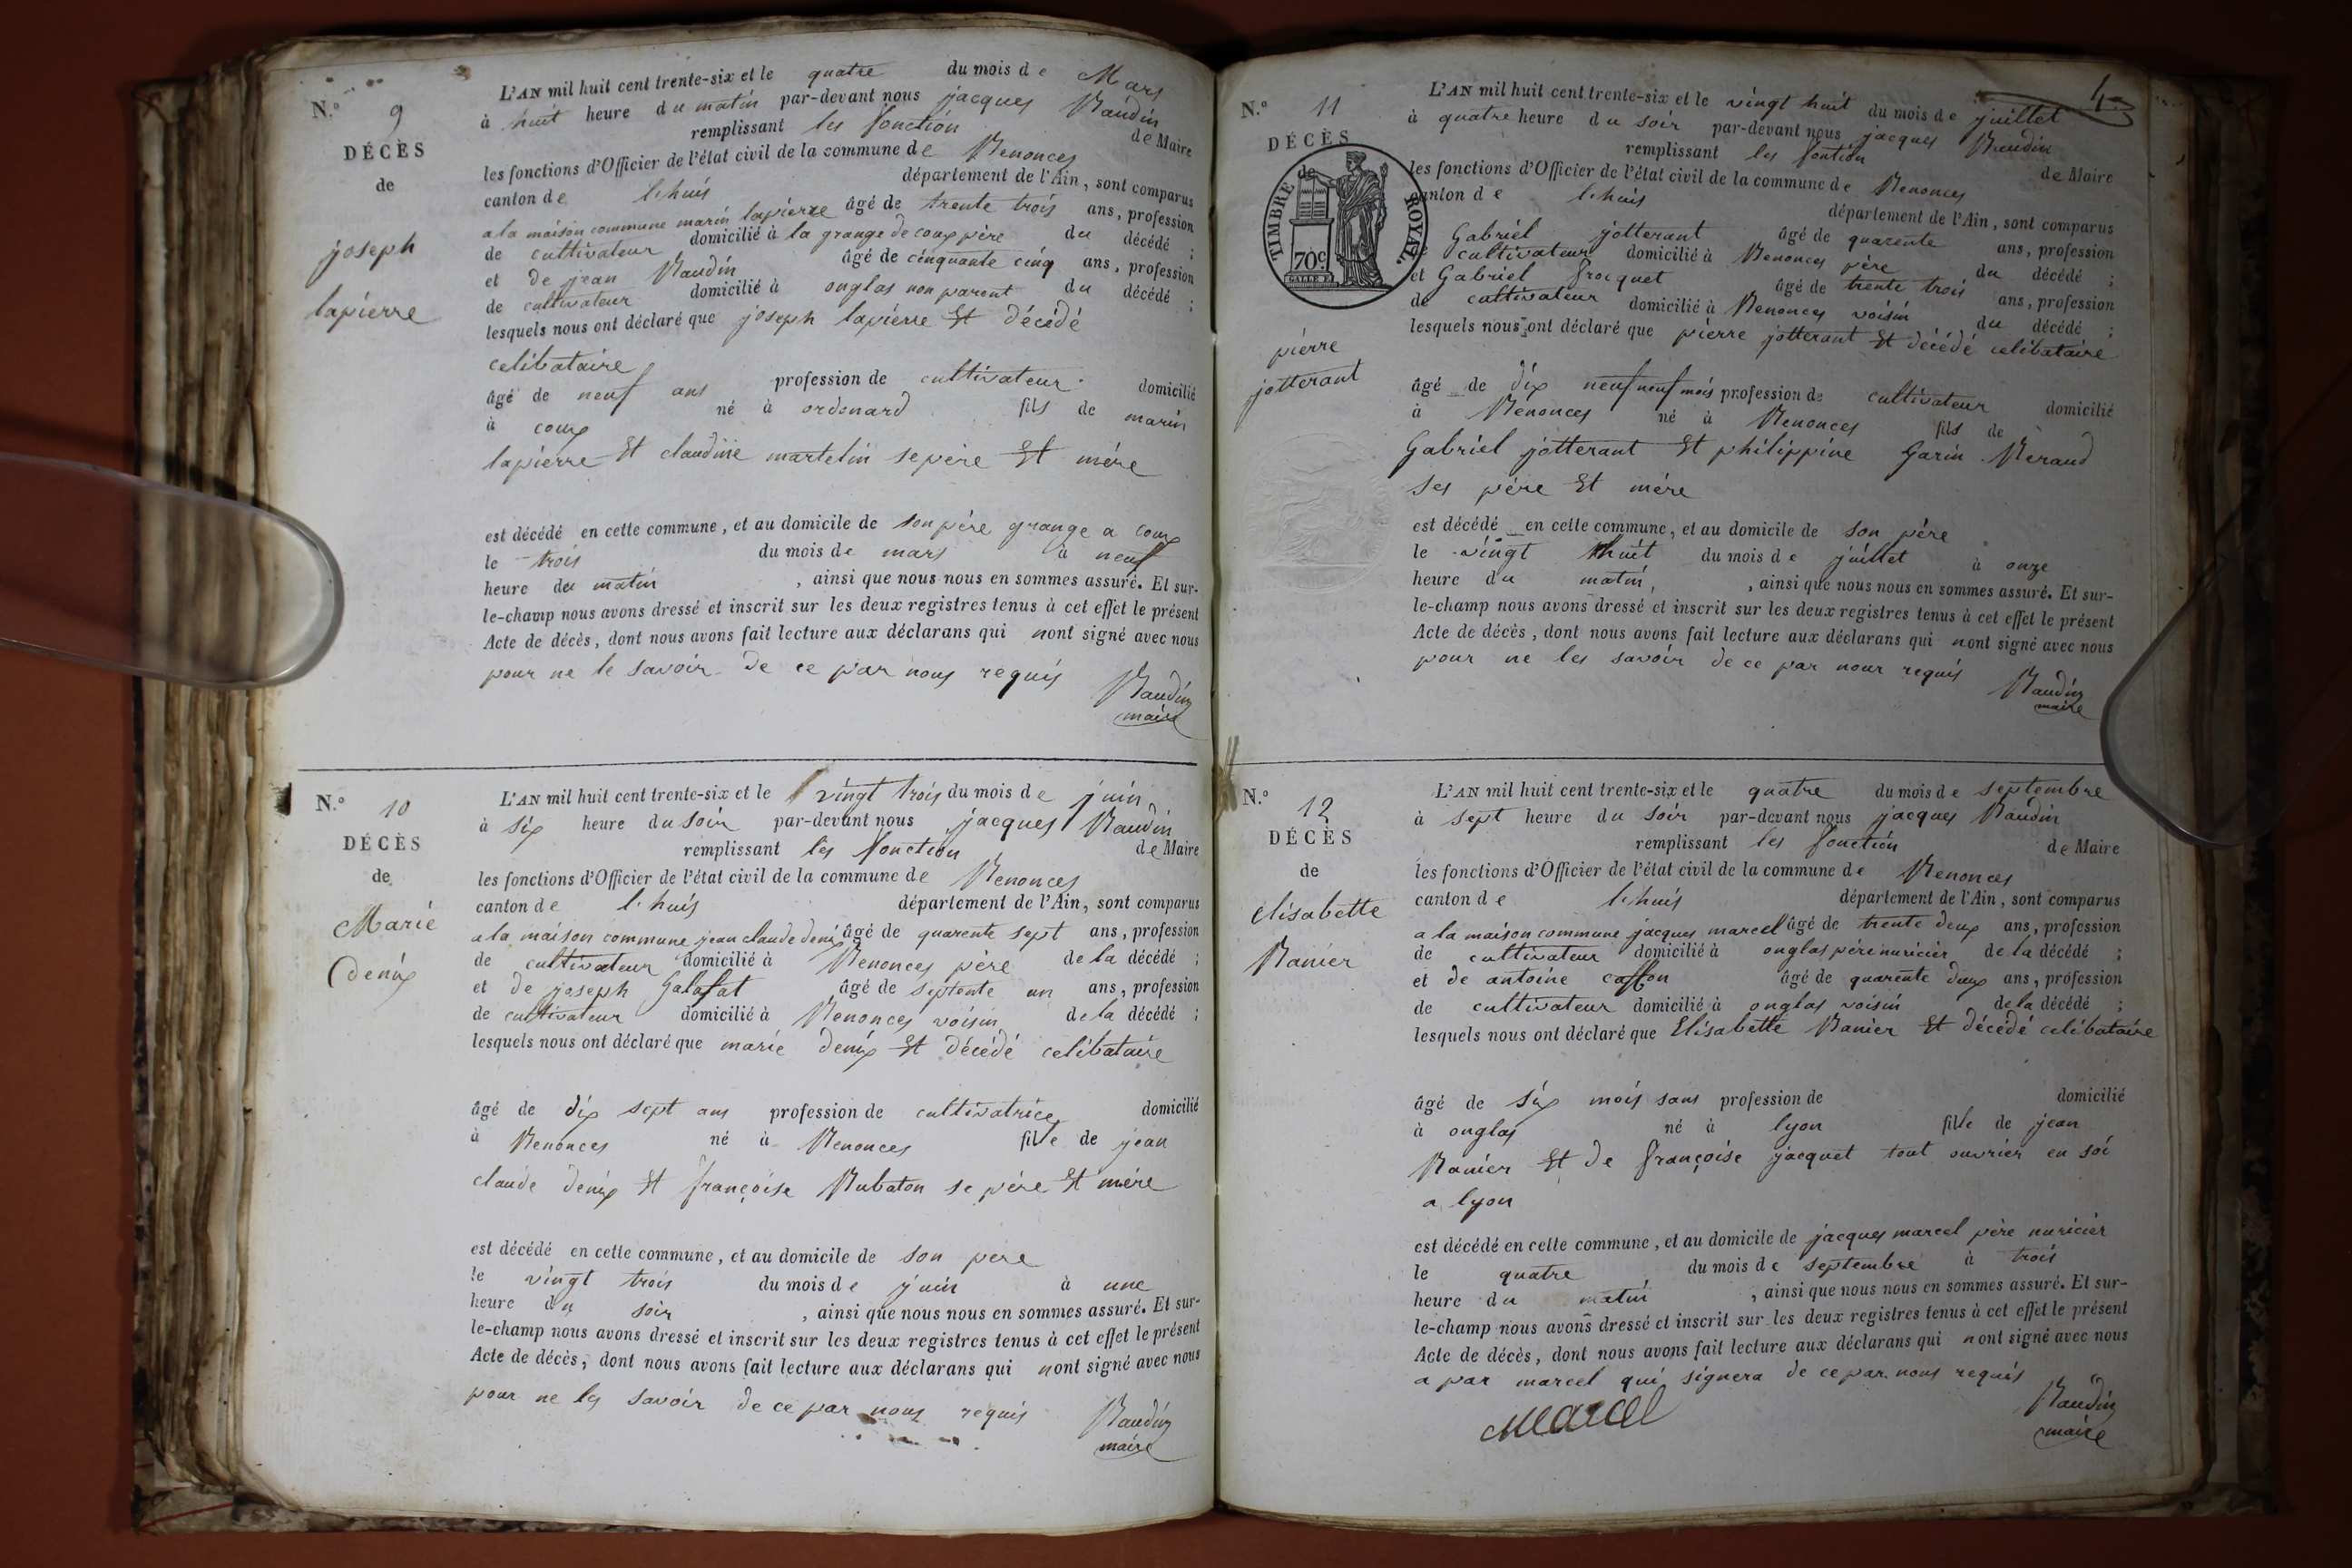 N.º 9
DÉCÈS
de
joseph
lapierre
L'AN mil huit cent trente-six et le quatre du mois de Mars
à huit heure du matin par-devant nous jacques Baudin
remplissant les fonction de Maire
les fonctions d'Officier de l'état civil de la commune de Benonces
canton de lhuis département de l'Ain, sont comparus
a la maison commune marin lapierre âgé de trente trois ans, profession
de cultivateur domicilié à la grange de coux père du décédé ;
et de jean Baudin âgé de cinquante cinq ans, profession
de cultivateur domicilié à onglas non parent du décédé ;
lesquels nous ont déclaré que joseph lapierre Et décédé
celibataire
âgé de neuf ans profession de cultivateur domicilié
à coux né à ordonard fils de marin
lapierre Et claudine martelin se père Et mère
est décédé en cette commune, et au domicile de son père grange a coux
le trois du mois de mars à neuf
heure du matin , ainsi que nous nous en sommes assuré. Et sur-
le-champ nous avons dressé et inscrit sur les deux registres tenus à cet effet le présent
Acte de décès, dont nous avons fait lecture aux déclarans qui nont signé avec nous
pour ne le savoir de ce par nous requis
Baudin
maire
N.º 10
DÉCÈS
de
Marie
denix
L'AN mil huit cent trente-six et le vingt trois du mois de juin
à six heure du soir par-devant nous jacques Baudin
remplissant les fonction de Maire
les fonctions d'Officier de l'état civil de la commune de Benonces
canton de lhuis département de l'Ain, sont comparus
a la maison commune jean claude denix âgé de quarente sept ans, profession
de cultivateur domicilié à Benonces père de la décédé ;
et de joseph Galafat âgé de septente un ans, profession
de cultivateur domicilié à Benonces voisin de la décédé ;
lesquels nous ont déclaré que marie denix Et décédé celibataire
âgé de dix sept ans profession de cultivatrice domicilié
à Benonces né à Benonces fille de jean
claude denix Et françoise Rubaton se père Et mère
est décédé en cette commune, et au domicile de son pere
le vingt trois du mois de juin à une
heure du soir , ainsi que nous nous en sommes assuré. Et sur-
le-champ nous avons dressé et inscrit sur les deux registres tenus à cet effet le présent
Acte de décès, dont nous avons fait lecture aux déclarans qui nont signé avec nous
pour ne les savoir de ce par nous requis
Baudin
maire
4
N.º 11
DÉCÈS
de
TIMBRE ROYAL
70c
pierre
jotterant
L'AN mil huit cent trente-six et le vingt huit du mois de juillet
à quatre heure du soir par-devant nous jacques Baudin
remplissant les fontion de Maire
les fonctions d'Officier de l'état civil de la commune de Benonces
canton de lhuis département de l'Ain, sont comparus
Gabriel jotterant âgé de quarente ans, profession
cultivateur domicilié à Benonces père du décédé ;
et Gabriel frocquet âgé de trente trois ans, profession
de cultivateur domicilié à Benonces voisin du décédé ;
lesquels nous ont déclaré que pierre jotterant Et décédé celibataire
âgé de dix neuf neuf mois profession de cultivateur domicilié
à Benonces né à Benonces fils de
Gabriel jotterant Et philippine Garin Beraud
ses père Et mère
est décédé en cette commune, et au domicile de son père
le vingt huit du mois de juillet à onze
heure du matin , ainsi que nous nous en sommes assuré. Et sur-
le-champ nous avons dressé et inscrit sur les deux registres tenus à cet effet le présent
Acte de décès, dont nous avons fait lecture aux déclarans qui nont signé avec nous
pour ne les savoir de ce par nour requis
Baudin
maire
N.º 12
DÉCÈS
de
elisabette
Banier
L'AN mil huit cent trente-six et le quatre du mois de septembre
à sept heure du soir par-devant nous jacques Baudin
remplissant les fonction de Maire
les fonctions d'Officier de l'état civil de la commune de Benonces
canton de lhuis département de l'Ain, sont comparus
a la maison commune jacques marcel âgé de trente deux ans, profession
de cultivateur domicilié à onglas père nuricier de la décédé ;
et de antoine caffon âgé de quarente deux ans, profession
de cultivateur domicilié à onglas voisin de la décédé ;
lesquels nous ont déclaré que Elisabette Banier Et décédé celibataire
âgé de six mois sans profession de domicilié
à onglas né à lyon fille de jean
Banier Et de françoise jacquet tout ouvrier en soi
a lyon
est décédé en cette commune, et au domicile de jacques marcel père nuricier
le quatre du mois de septembre à trois
heure du matin , ainsi que nous nous en sommes assuré. Et sur-
le-champ nous avons dressé et inscrit sur les deux registres tenus à cet effet le présent
Acte de décès, dont nous avons fait lecture aux déclarans qui nont signé avec nous
a par marcel qui signera de ce par nous requis
Marcel
Baudin
maire